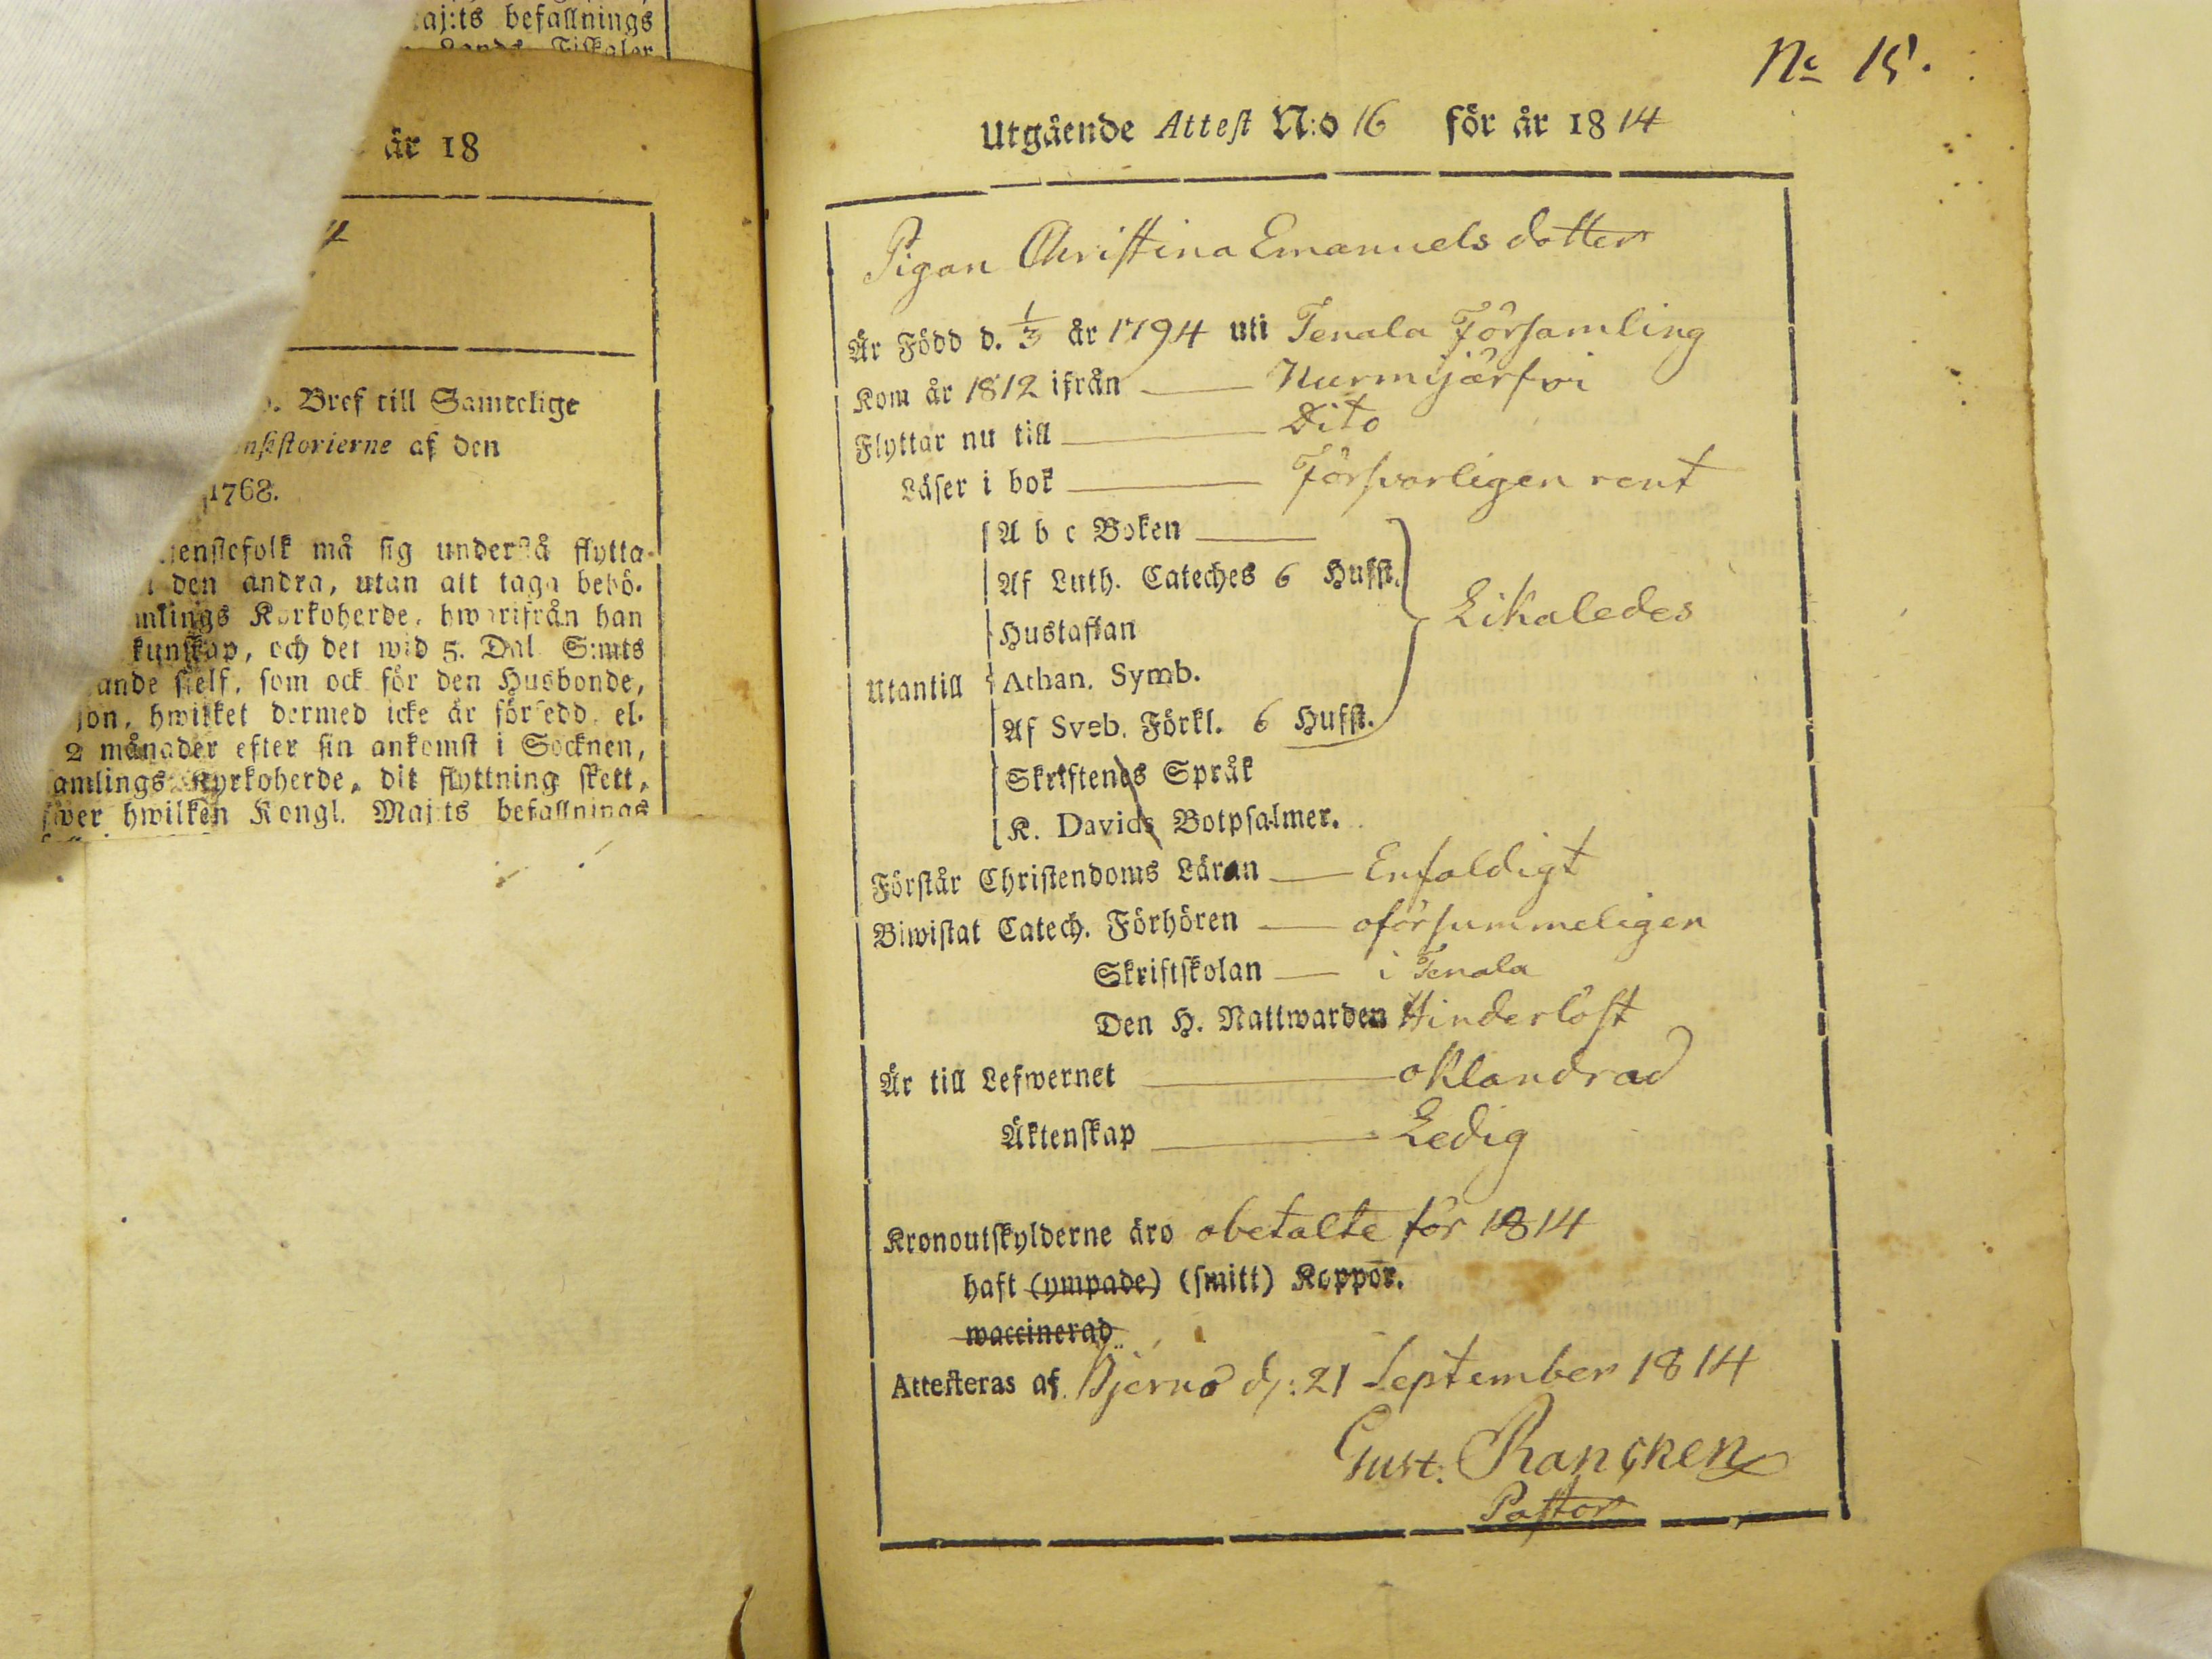 aj:ts befallnings
är 18
Bref till Samtelige
nsistorierne af den
1768.
jenstefolk må sig understå flytta
den andra, utan att taga behö-
mlings Kyrkoherde, hwarifrån han
kunskap, och det wid 5. Dal. S:mts
ande sielf, som ock för den Husbonde,
son, hwilket dermed icke är försedd, el-
2 månader efter sin ankomst i Socknen,
amlings Kyrkoherde, dit flyttning skett,
öwer hwilken Kongl. Maj:ts befallnings
No 15.
Utgående Attest N:o 16 för år 1814
Pigan Christina Emanuels dotter
Är Född d. 1/3 år 1794 uti Tenala Församling
Kom år 1812 ifrån Nurmijärfwi
Flyttar nu till Dito
Läser i bok Försvarligen rent
A b c Boken
Af Luth. Cateches 6 Hufst.
Hustaflan
Likaledes
Utantill
Athan. Symb.
Af Sveb. Förkl. 6 Hufst.
Skriftenes Språk
K. Davids Botpsalmer.
Förstår Christendoms Läran Enfaldigt
Biwistat Catech. Förhören oförsummeligen
Skriftskolan i Tenala
Den H. Nattwarden Hinderlöst
Är till Lefwernet oklandrad
Äktenskap Ledig
Kronoutskylderne äro obetalte för 1814
haft (ympade) (smitt) Koppor.
waccinerad
Attesteras af Bjerno d: 21 September 1814
Gust. Rancken
Pastor